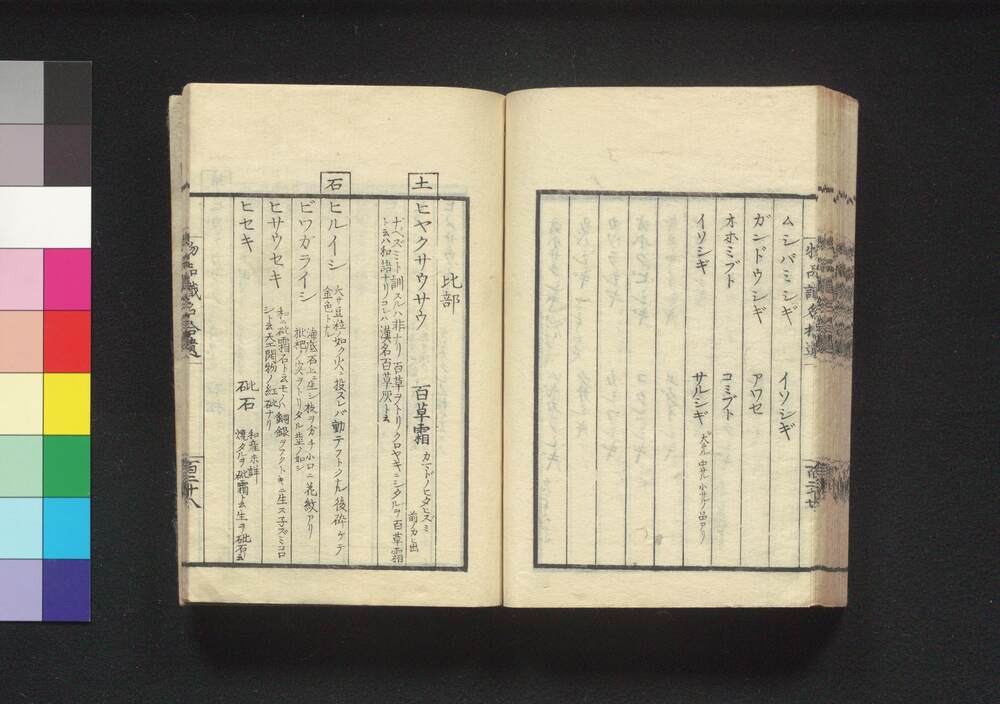 ムシバミシギ イソシギ
ガンドウシギ アワセ
オホミブト コミブト
イソシギ サルシギ 大サル中サル小サルノ品アリ
物品識名拾遺
比部
土 ヒヤクサウサウ 百草霜 カマドノヒタヒズミ
前ノカニ出
ナベズミト訓スルハ非ナリ 百草ヲトリクロヤキニシタルヲ百草霜
ト云ハ和語ナリ コレハ漢名百草灰ト云
石 ヒルイシ 大サ豆粒ノ如ク火ニ投スレバ動テフトクナル後砕ケテ
金色トナル
ビワガライシ 海底石上ニ生シ枝ヲ分チ小口ニ花紋アリ
枇杷ノ実ヲトリタル莖ノ如シ
ヒサウセキ 和ニ砒霜石ト云モノハ銅鏃ヲフクトキニ生ス子ズミコロ
シト云天工開物ノ紅砒ナリ
ヒセキ 砒石 和産未詳
燒タルヲ砒霜ト云生ヲ砒石ト云
物品識名拾遺
百二十八